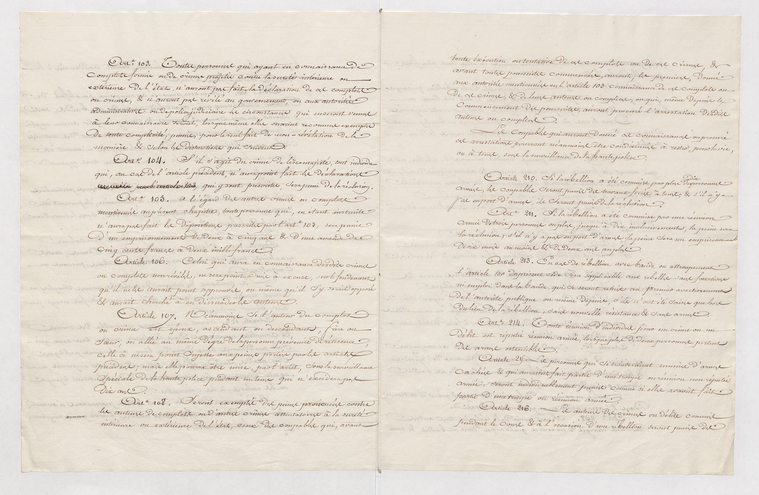 Art. 103. Toute personne qui ayant eu connaissance de
complots formés ou de crimes projetés contre la sureté intérieure ou
extérieure de l'état, n'auront pas fait la déclaration de ces complots
ou crimes, & n'auront pas révélé au gouvernement, ou aux autorités
administratives ou de police judiciaire, les circonstances qui en seront venues
à leur connaissance, seront, lors même elles seraient reconnues exemptes
de toute complicité, punies, pour le seul fait de non-révélation de la
manière & selon les distinctions qui suivent.
Art. 104. S'il s'agit du crime de lèse majesté, tout individu
qui, au cas de l'article précédent, n'aura point fait les déclarations
qui y sont prescrites sera puni de la réclusion.
Art. 105. à l'égard des autres crimes ou complots
mentionnés au présent chapitre, toute personne qui, en étant instruite
n'aura pas fait les déclarations prescrites par l'art. 103, sera punie
d'un emprisonnement de deux à cinq ans & d'une amende de
cinq cents francs à deux mille francs.
Article 106. Celui qui aura eu connaissance desdits crimes
ou complots non révélés, ne sera point admis à excuse, sur le fondement
qu'il ne les aurait point approuvés, ou même qu'il s'y serait opposé
& aurait cherché à en dissuader les auteurs.
Article 107. Néanmoins si l'auteur du complot
ou crime est époux, ascendant ou descendant, frère ou
sœur, ou allié au même degré de la personne prévenue de réticence,
celle-ci ne sera point sujette aux peines portées par les articles
précédents; mais elle pourra être mise, par l'arrêt, sous la surveillance
spéciale de la haute police pendant un temps qui n'excédera pas
dix ans.
Art. 108. Seront exemptés des peines prononcées contre
les auteurs de complots ou d'autres crimes attentatoires à la sureté
intérieure ou extérieure de l'état, ceux des coupables qui, avant
toute exécution ou tentative de ces complots ou de ces crimes, &
avant toutes poursuites commencées, auront, les premiers, donné
aux autorités mentionnées en l'article 103 connaissance de ces complots ou
de ces crimes, & de leurs auteurs ou complices, ou qui, même depuis le
commencement des poursuites, auront procuré l'arrestation desdits
auteurs ou complices.
Les coupables qui auront donné ces connaissances ou procuré
ces arrestations pourront néanmoins être condamnés à rester pour la vie
ou à temps sous la surveillance de la haute police.
Article 210. Si la rébellion a été commise par plus de
armées, les coupables seront punis des travaux forcés à temps, & s'il n'y a
pas eu port d'armes, ils seront punis de la réclusion.
Art. 211. Si la rébellion a été commise par une réunion
armée de trois personnes ou plus jusqu'à vingt inclusivement, la peine sera
la réclusion; s'il n'y a pas eu port d'armes, la peine sera un emprisonnement
de six mois au moins & de deux ans au plus.
Article 213. En cas de rébellion avec bande ou attroupement
l'article 100 du présent code sera applicable aux rebelles sans fonctions
ni emplois dans la bande, qui se seront retirés au premier avertissement
de l'autorité publique ou même depuis, s'ils n'ont été saisis que hors
du lieu de la rébellion, & sans nouvelle résistance & sans armes.
Art. 214. Toute réunion d'individus pour un crime ou un
délit est réputée réunion armée, lorsque plus de deux personnes portent
des armes ostensibles.
Article 215. Les personnes qui se trouveraient munies d'armes
cachées & qui auraient fait partie d'une troupe ou réunion non réputée
armée, seront individuellement punies comme si elles avaient fait
partie d'une troupe ou réunion armée.
Article 216. Les auteurs des crimes ou délits commis
pendant le cours & à l'occasion d'une rébellion seront punis des